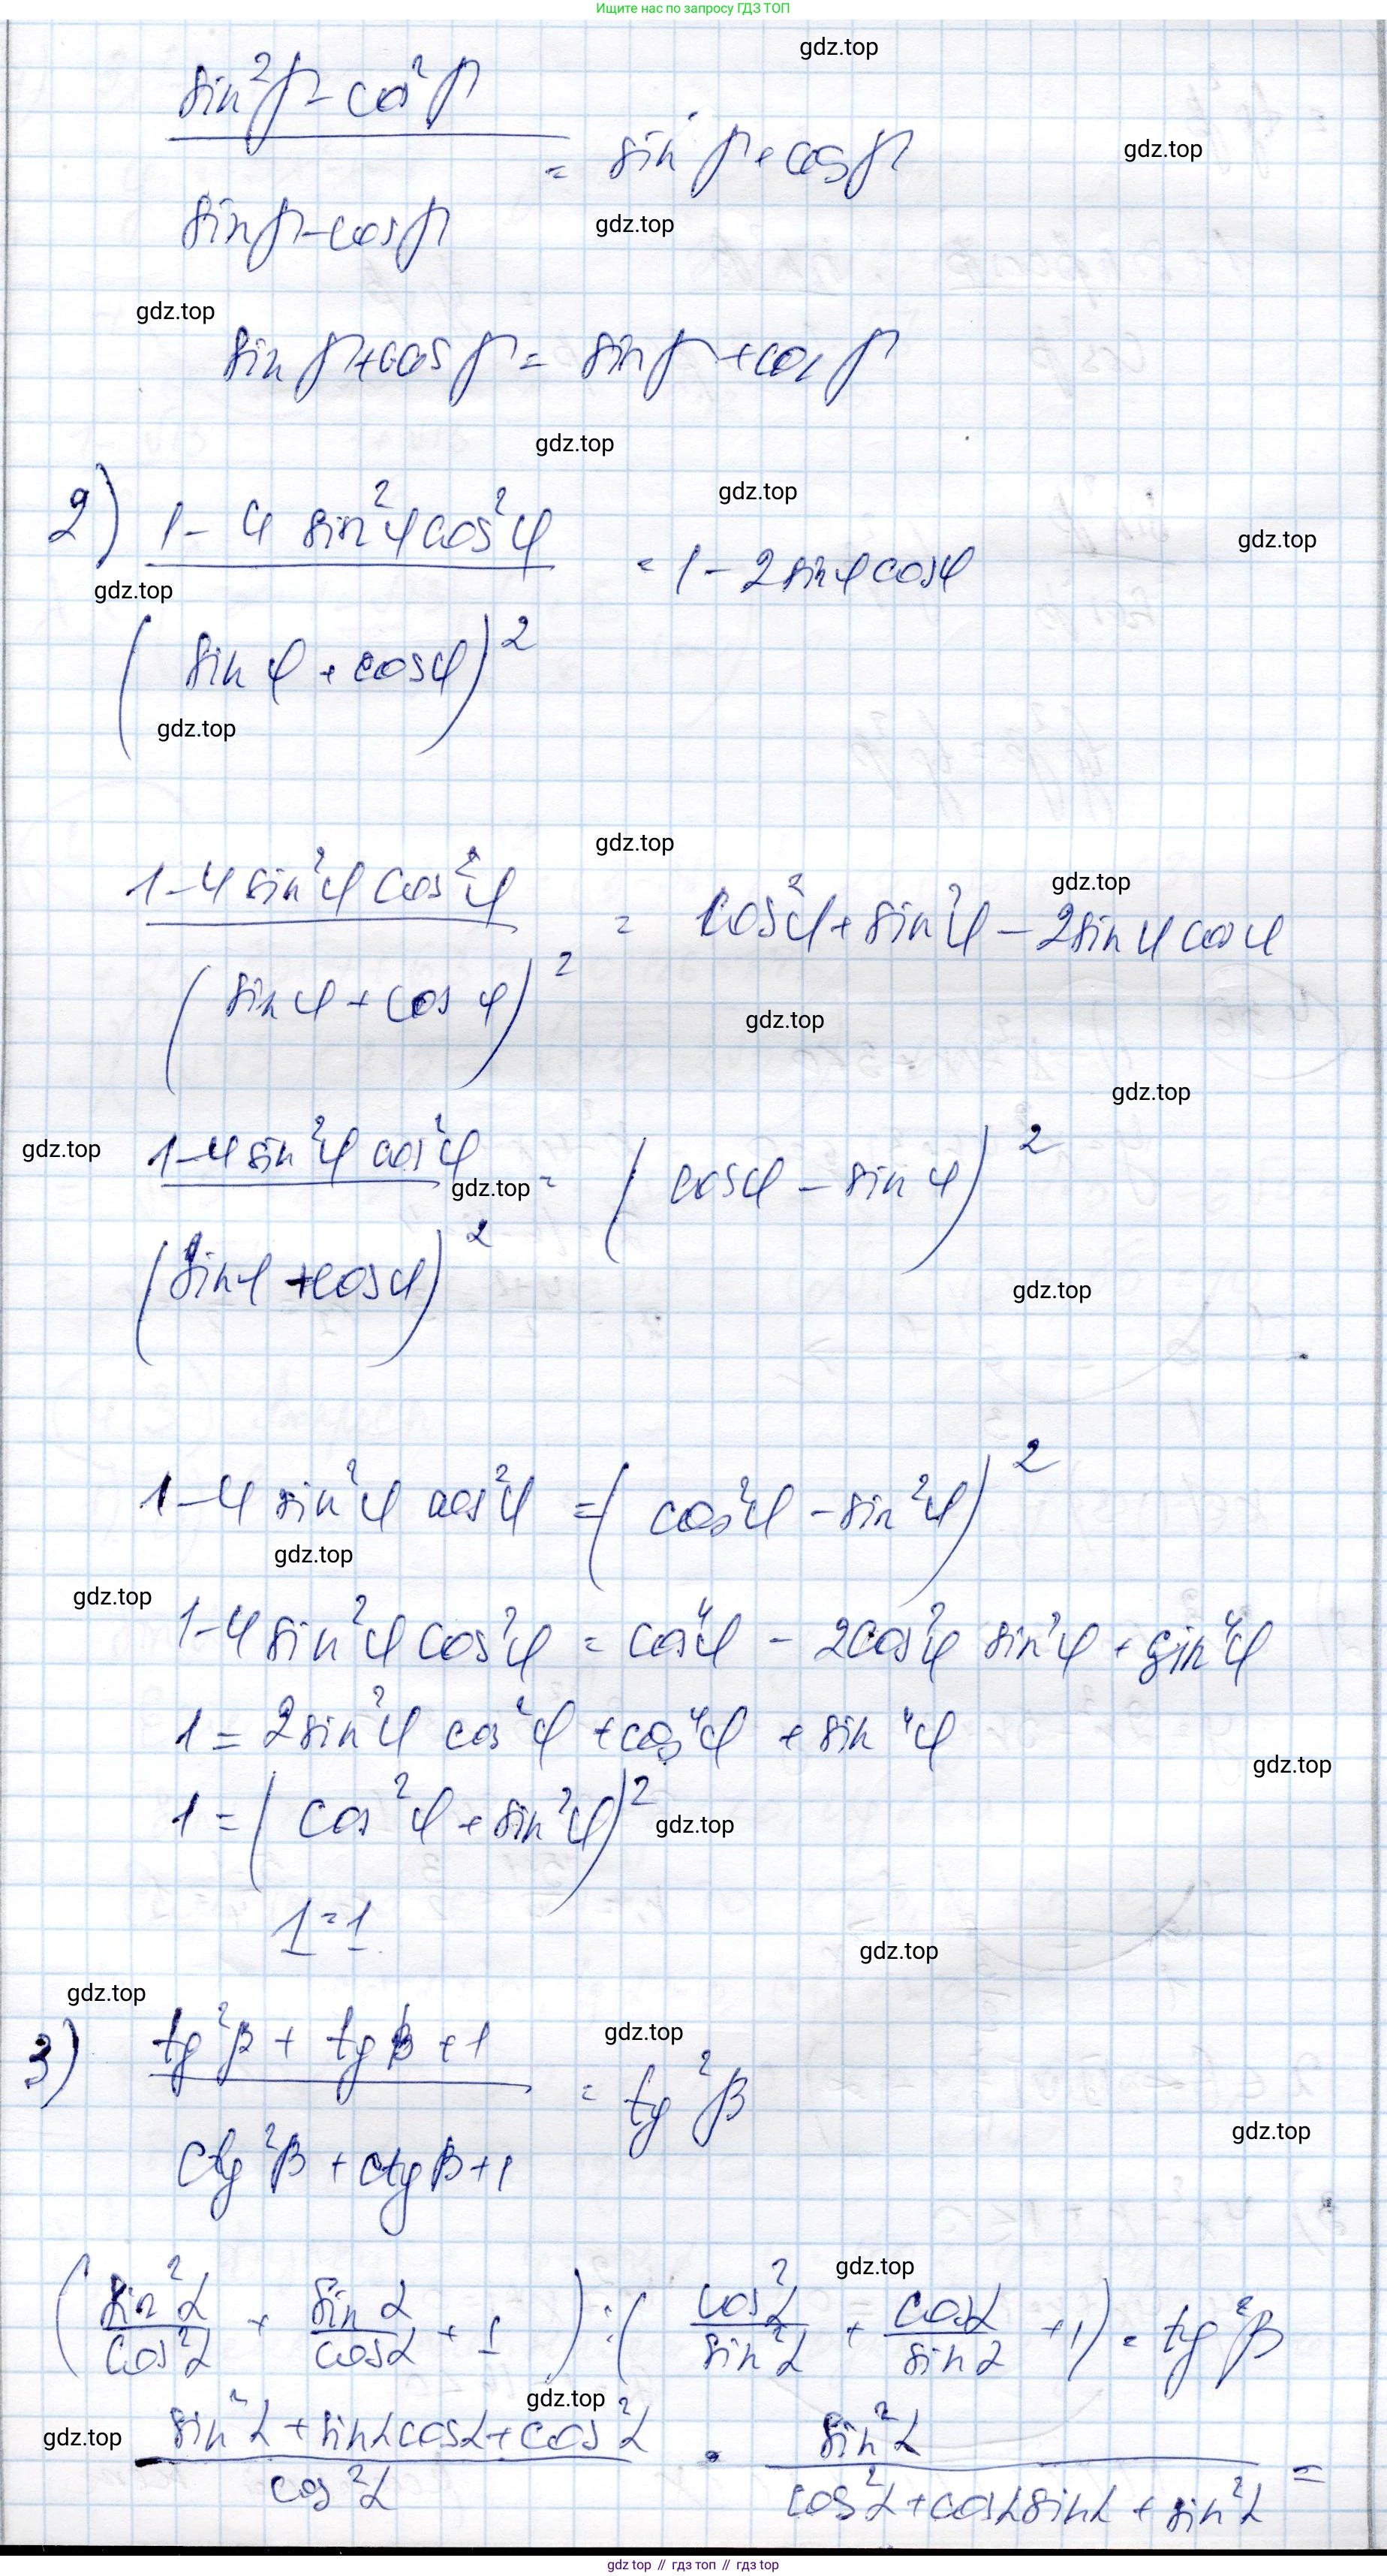 Ищите нас по запросу ГДЗ ТОП
gdz.top
(sin²β - cos²β)/(sinβ - cosβ) = sin β + cosβ
gdz.top
gdz.top
gdz.top
sin β + cos β = sin β + cos β
gdz.top
gdz.top
2) (1 - 4 sin²φ cos²φ)/(sin φ + cosφ)² = 1 - 2 sinφ cosφ
gdz.top
gdz.top
gdz.top
gdz.top
gdz.top
(1 - 4 sin²φ cos²φ)/(sin φ + cos φ)² = cos²φ + sin²φ - 2 sin φ cos φ
gdz.top
gdz.top
gdz.top
(1 - 4 sin²φ cos²φ)/(sinφ + cosφ)² = (cosφ - sin φ)²
gdz.top
gdz.top
1 - 4 sin²φ cos²φ = (cos²φ - sin²φ)²
gdz.top
gdz.top
1 - 4 sin²φ cos²φ = cos⁴φ - 2cos²φ sin²φ + sin⁴φ
1 = 2 sin²φ cos²φ + cos⁴φ + sin⁴φ
gdz.top
1 = (cos²φ + sin²φ)²
gdz.top
1 = 1
gdz.top
gdz.top
3) (tg²β + tg β + 1)/(ctg²β + ctg β + 1) = tg²β
gdz.top
gdz.top
gdz.top
(sin²α/cos²α + sin α/cosα + 1) : (cos²α/sin²α + cosα/sin α + 1) = tg²β
gdz.top
gdz.top
(sin²α + sinα cosα + cos²α)/cos²α · sin²α/(cos²α + cosα sinα + sin²α) =
gdz.top // гдз топ // гдз top